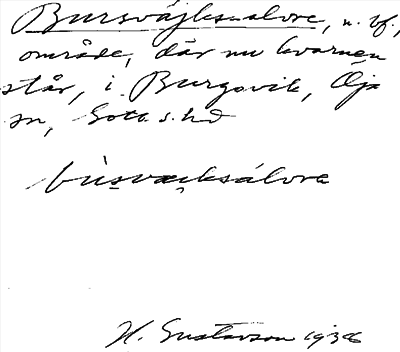 Bursvájks-alvre, n. bf.,
område, där nu kvarnen
står, i Burgsvik, Öja
sn, Gotl. s. hd
bùsvæiksálvra
H. Gustavson 1936